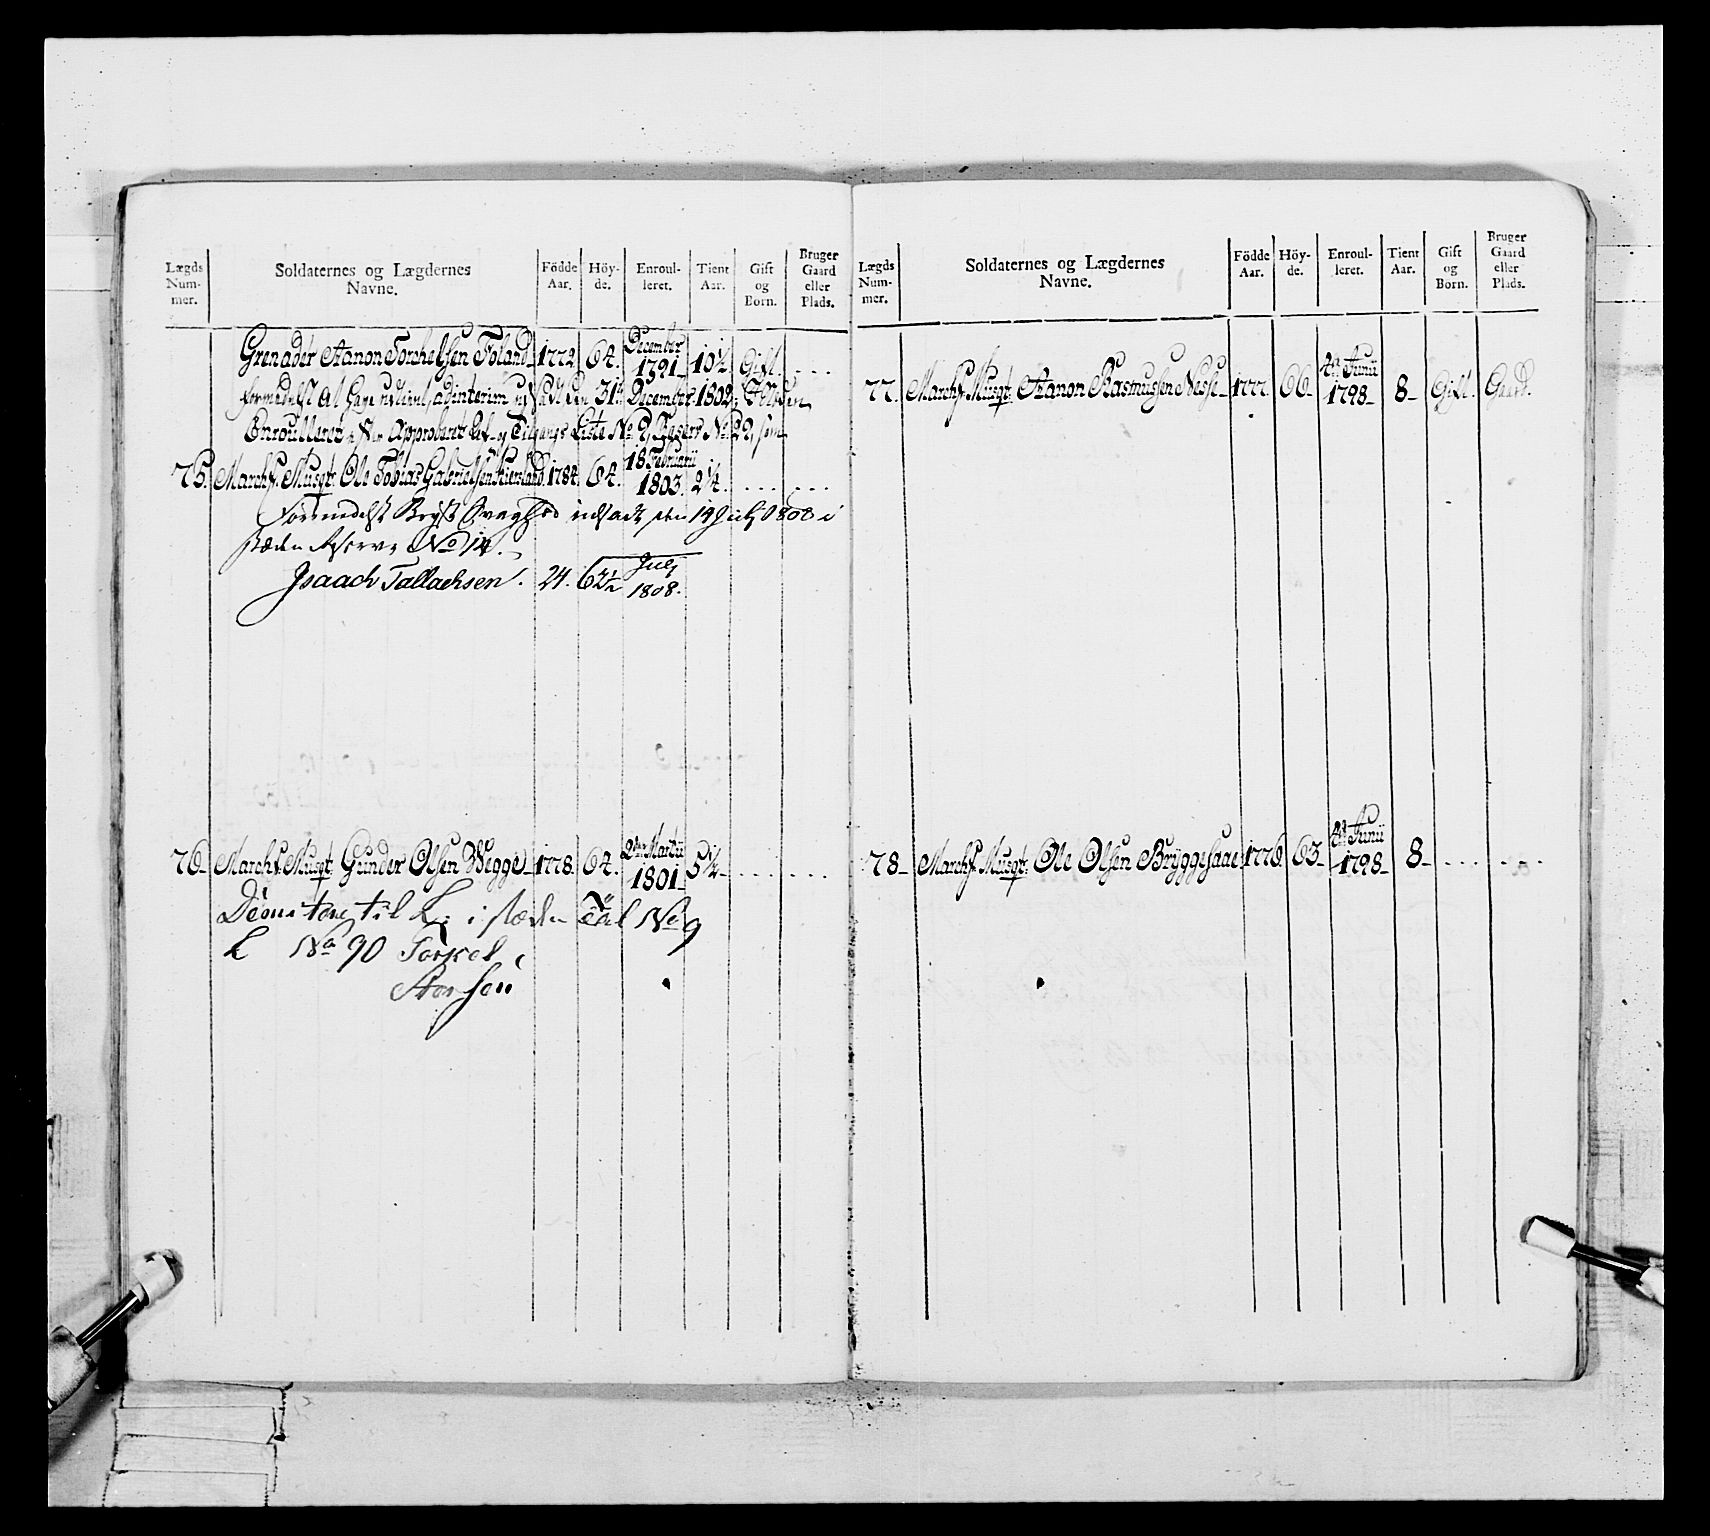 Lægds Num- mer.
Soldaternes og Lægdernes Navne.
Födde Aar.
Höy- de.
Enroul- leret.
Tient Aar.
Gift og Born.
Bruger Gaard eller Plads.
Grenadér Aanon Torchelsen Foland 1772 64. December 1791 10½ Gift. ...
formedelst at have udtient, adinterim udsadt den 31te December 1802,
Enroulleret efter Approberet Af- og Tilgangs Liste No 9, som
75. Marchf. Musqt: Ole Tobias Gabrielsen 1784. 64. 18 Februarii 1803. 2¼. ... ...
Formedelst Bryst Svaghed udsadt den 14 July 1808 i
stæden Reserve No 14.
Isaach Tallachsen. 24. 62½ July 1808.
76 Marchf. Musqt: Gunder Olsen Vegge 1778. 64. 2den Martii 1801 5¼ ... ...
til L: i stæden Tal No 9
L No 90 Torkel
Aansen
Lægds Num- mer.
Soldaternes og Lægdernes Navne.
Födde Aar.
Höy- de.
Enroul- leret.
Tient Aar.
Gift og Born.
Bruger Gaard eller Plads.
77. Marchf. Musqt: Aanon Rasmussen Nesse 1777. 66 4de Junii 1798 8 Gift. Gaard.
78 Marchf. Musqt: Ole Olsen Bryggesaae 1776. 63 4de Junii 1798 8 ... ...